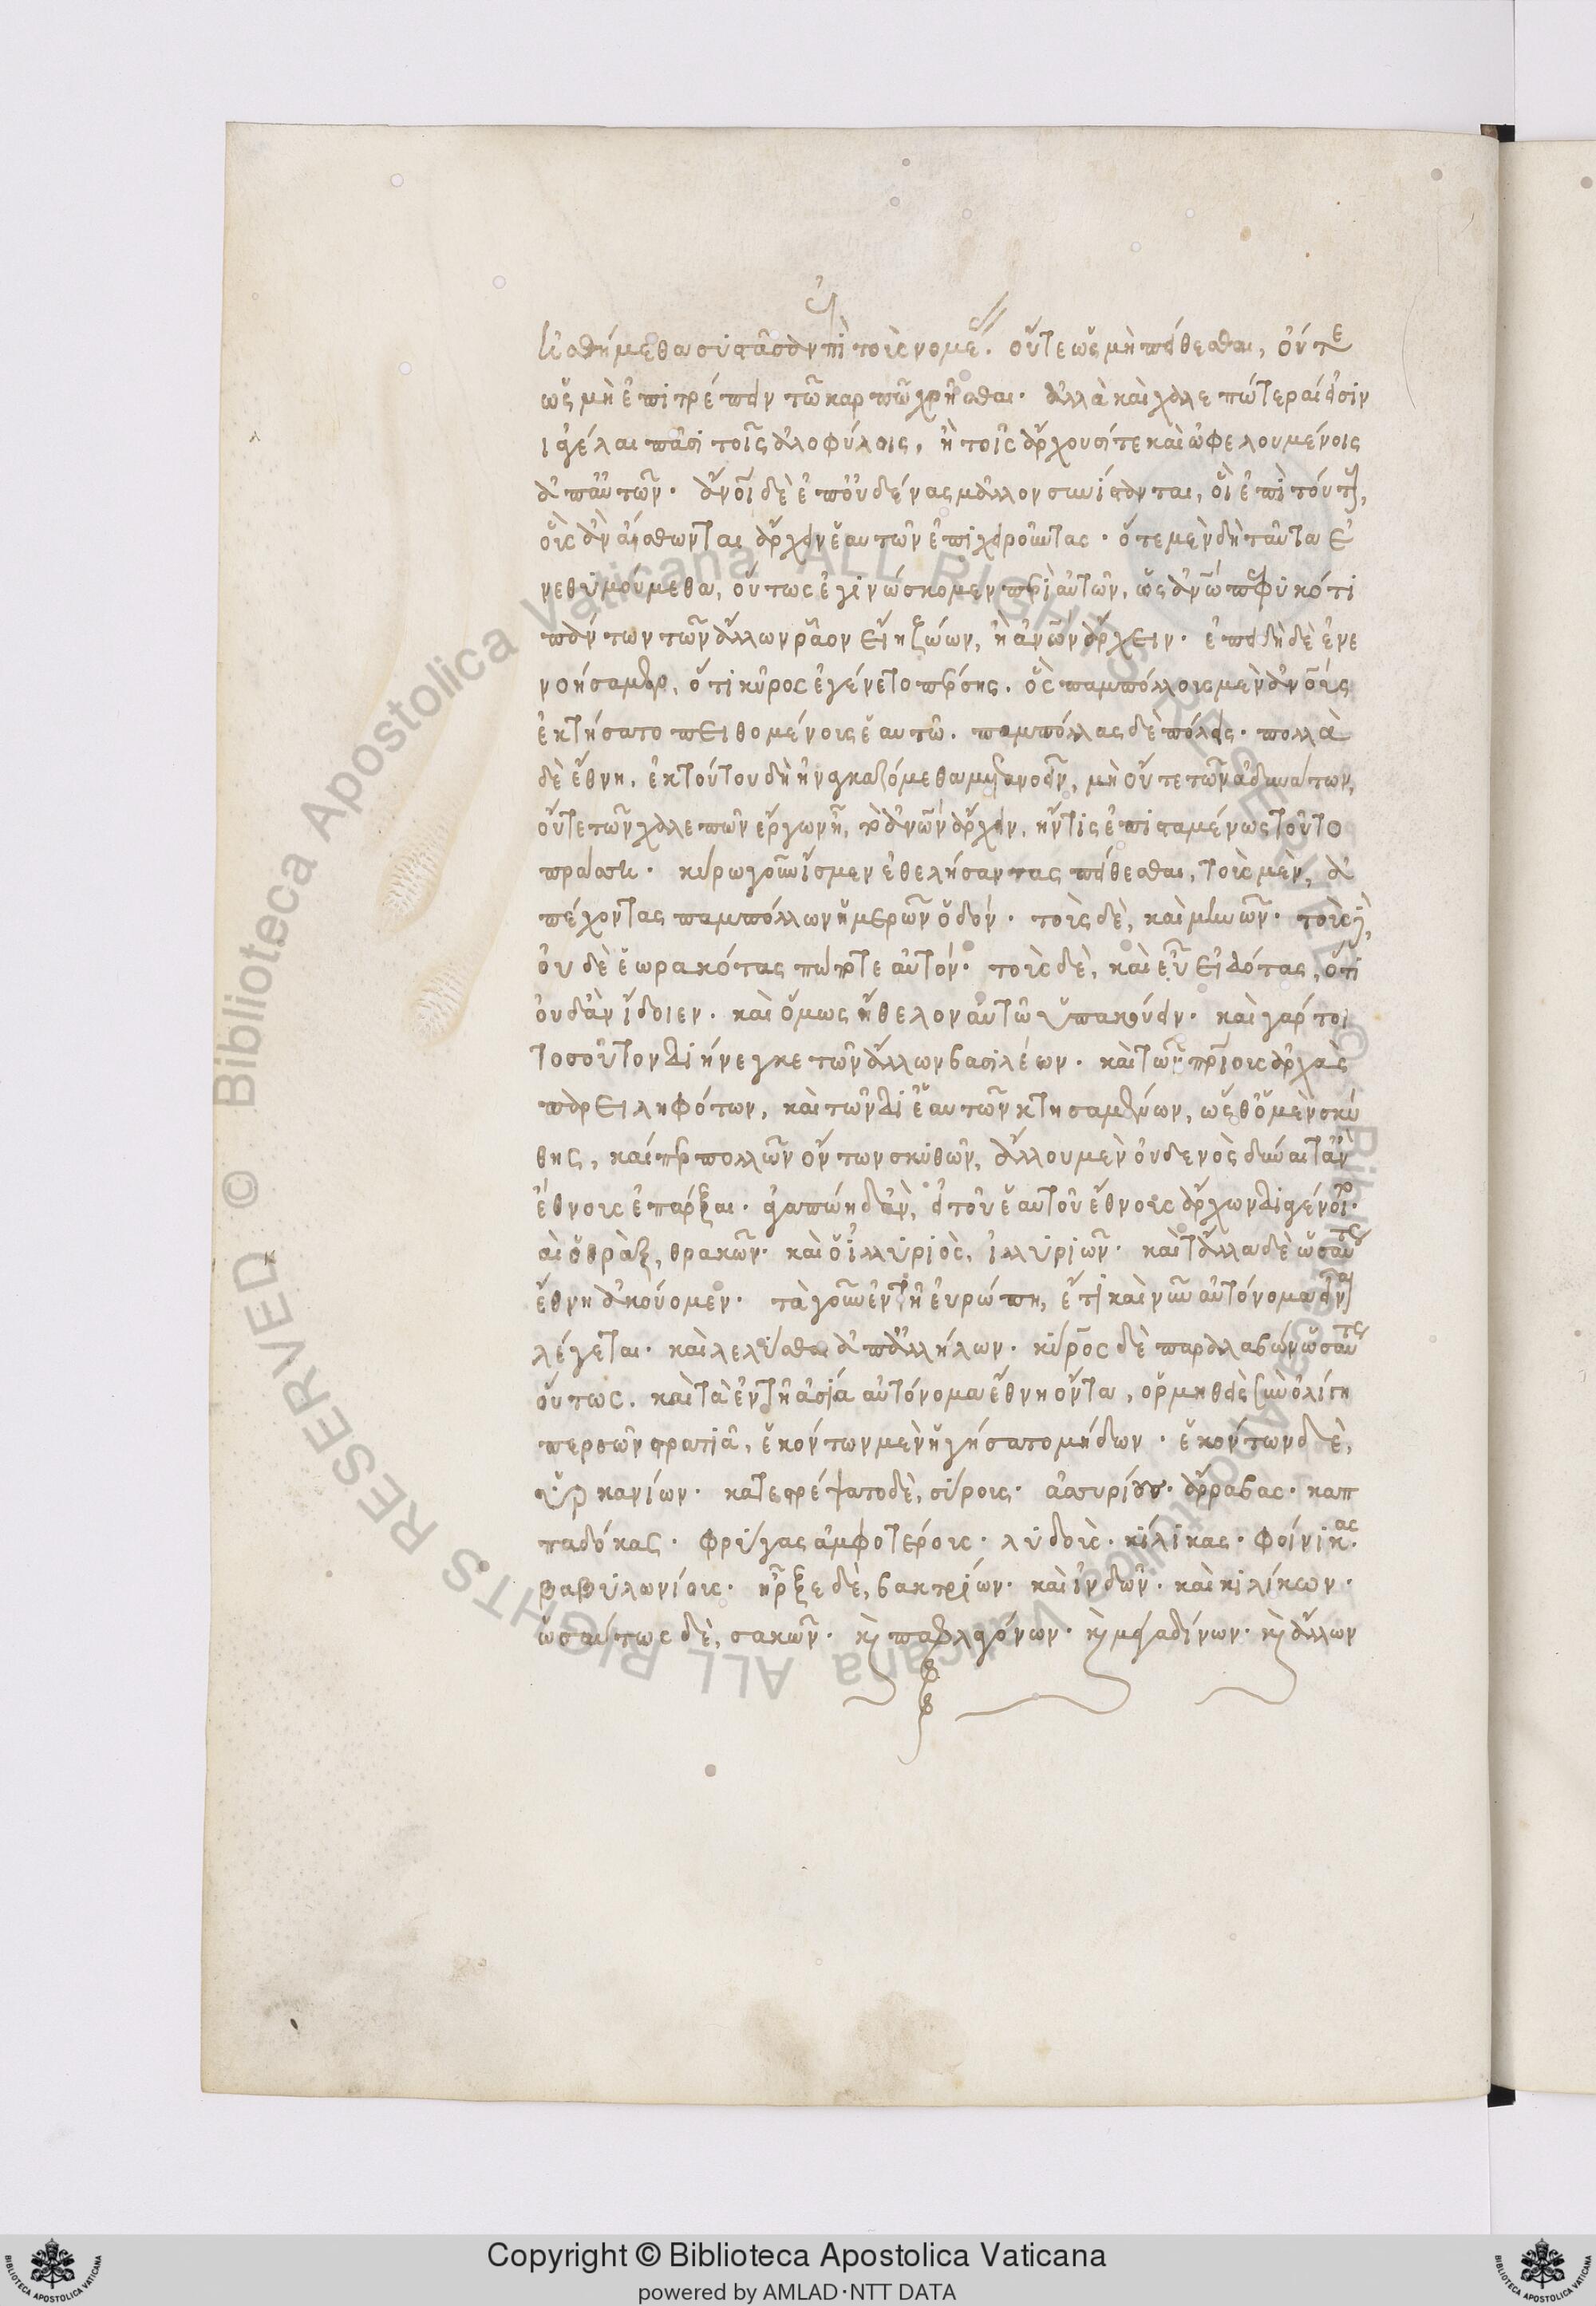 ᾐσθήμεθα συστᾶσαν ἐπὶ τοὺς νομέας. οὔτε ὡς μὴ πείθεσθαι, οὔτε
ὡς μὴ ἐπιτρέπειν τῶ καρπῶ χρῆσθαι. ἀλλὰ καὶ χαλεπώτεραί εἰσιν
ἱ ἀγέλαι πᾶσι τοῖς ἀλοφύλοις, ἢ τοῖς ἄρχουσί τε καὶ ὠφελουμένοις
ἀπ' αὐτῶν. ἄνοι δὲ ἐπ' οὐδένας μᾶλλον συνίστανται, ἢ ἐπὶ τούτους,
οὓς ἂν αἴσθωνται ἄρχειν ἑαυτῶν ἐπιχειροῦντας. ὅτε μὲν δὴ ταῦτα ἐ
νεθυμούμεθα, οὕτως ἐγινώσκομεν περὶ αὐτῶν, ὡς ἀνω πεφυκότι
πάντων τῶν ἄλλων ῥᾶον εἴη ζώων, ἢ ἀνων ἄρχειν. ἐπειδὴ δὲ ἐνε
νοήσαμεν, ὅτι κῦρος ἐγένετο πέρσης. ὃς παμπόλλους μὲν ἀνους
ἐκτήσατο πειθομένους ἑαυτῶ. παμπόλλας δὲ πόλεις. πολλὰ
δὲ ἔθνη. ἐκ τούτου δὴ ἠναγκαζόμεθα μετανοεῖν, μὴ οὔτε τῶν ἀδυνάτων,
οὔτε τῶν χαλεπῶν ἔργων ἦ, τὸ ἀνων ἄρχειν, ἤν τις ἐπισταμένως τοῦτο
πράσση. κύρω γοῦν ἴσμεν ἐθελήσαντας πείθεσθαι, τοὺς μὲν, ἀ
πέχοντας παμπόλλων ἡμερῶν ὁδόν. τοὺς δὲ, καὶ μηνῶν. τοὺς δὲ,
οὐδὲ ἑωρακότας πώποτε αὐτόν. τοὺς δὲ, καὶ εὖ εἰδότας, ὅτι
οὐδ' ἂν ἴδοιεν. καὶ ὅμως ἤθελον αὐτῶ ὑπακούειν. καὶ γάρ τοι
τοσοῦτον διήνεγκε τῶν ἄλλων βασιλέων. καὶ τῶν πατρίους ἀρχὰς
παρειληφότων, καὶ τῶν δι' ἑαυτῶν κτησαμένων, ὥσθ' ὁ μὲν σκύ
θης, καίπερ πολλῶν ὄντων σκυθῶν, ἄλλου μὲν οὐδενὸς δύναιτ' ἂν
ἔθνους ἐπάρξαι. ἀγαπώη δ' ἂν, εἰ τοῦ ἑαυτοῦ ἔθνους ἄρχων διαγένοιτο.
αὶ ὁ θρὰξ, θρακῶν. καὶ ὁ ἰλλυριὸς, ἰλλυριῶν. καὶ τἄλλα δὲ ὡσαύτως
ἔθνη ἀκούομεν. τὰ γοῦν ἐν τῆ εὐρώπη, ἔτι καὶ νῦν αὐτόνομα εἶναι
λέγεται. καὶ λελύσθαι ἀπ' ἀλλήλων. κῦρος δὲ παραλαβὼν ὡσαύτως
οὕτως. καὶ τὰ ἐν τῆ ἀσία αὐτόνομα ἔθνη ὄντα, ὁρμηθεὶς σὺν ὀλίγη
περσῶν στρατιᾶ, ἑκόντων μὲν ἡγήσατο μήδων. ἑκόντων δὲ,
ὑρκανίων. κατεστρέψατο δὲ, σύρους. ἀσσυρίους. ἄρραβας. καπ
παδόκας. φρύγας ἀμφοτέρους. λυδοὺς. κίλικας. φοίνικας.
βαβυλωνίους. ἦρξε δὲ, βακτρίων. καὶ ἰνδῶν. καὶ κιλίκων.
ὡσαύτως δὲ, σακῶν. καὶ παφλαγόνων. καὶ μεγαδίνων. καὶ ἄλλων
Copyright © Biblioteca Apostolica Vaticana
powered by AMLAD·NTT DATA